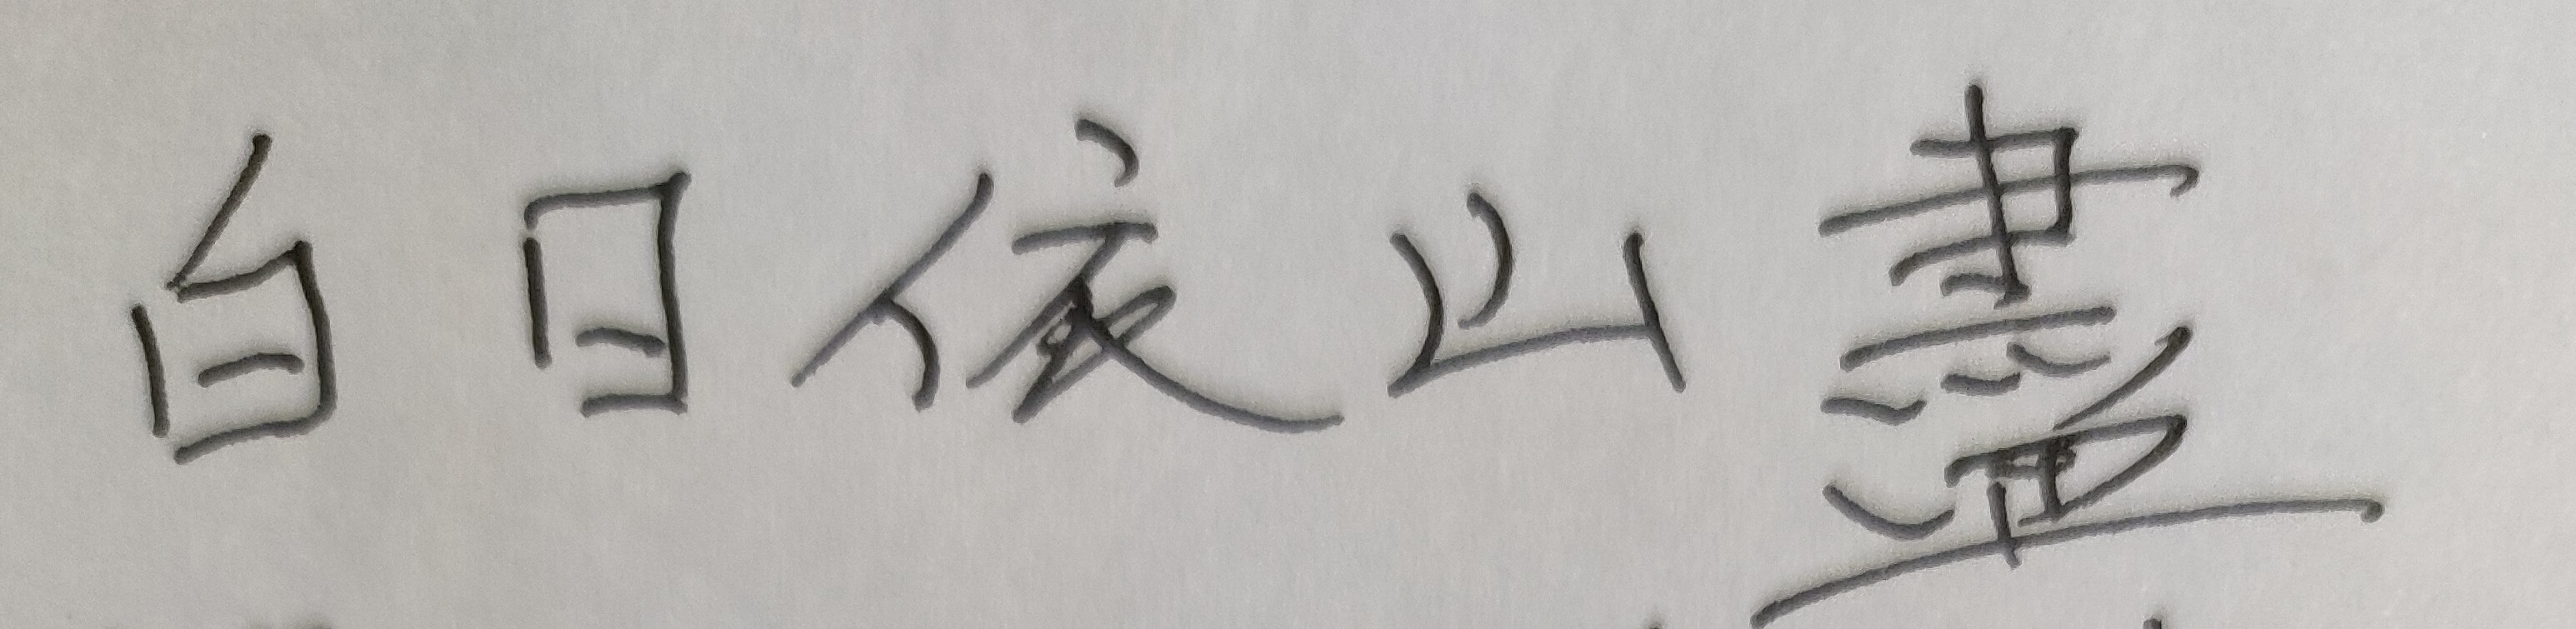 白日依山盡